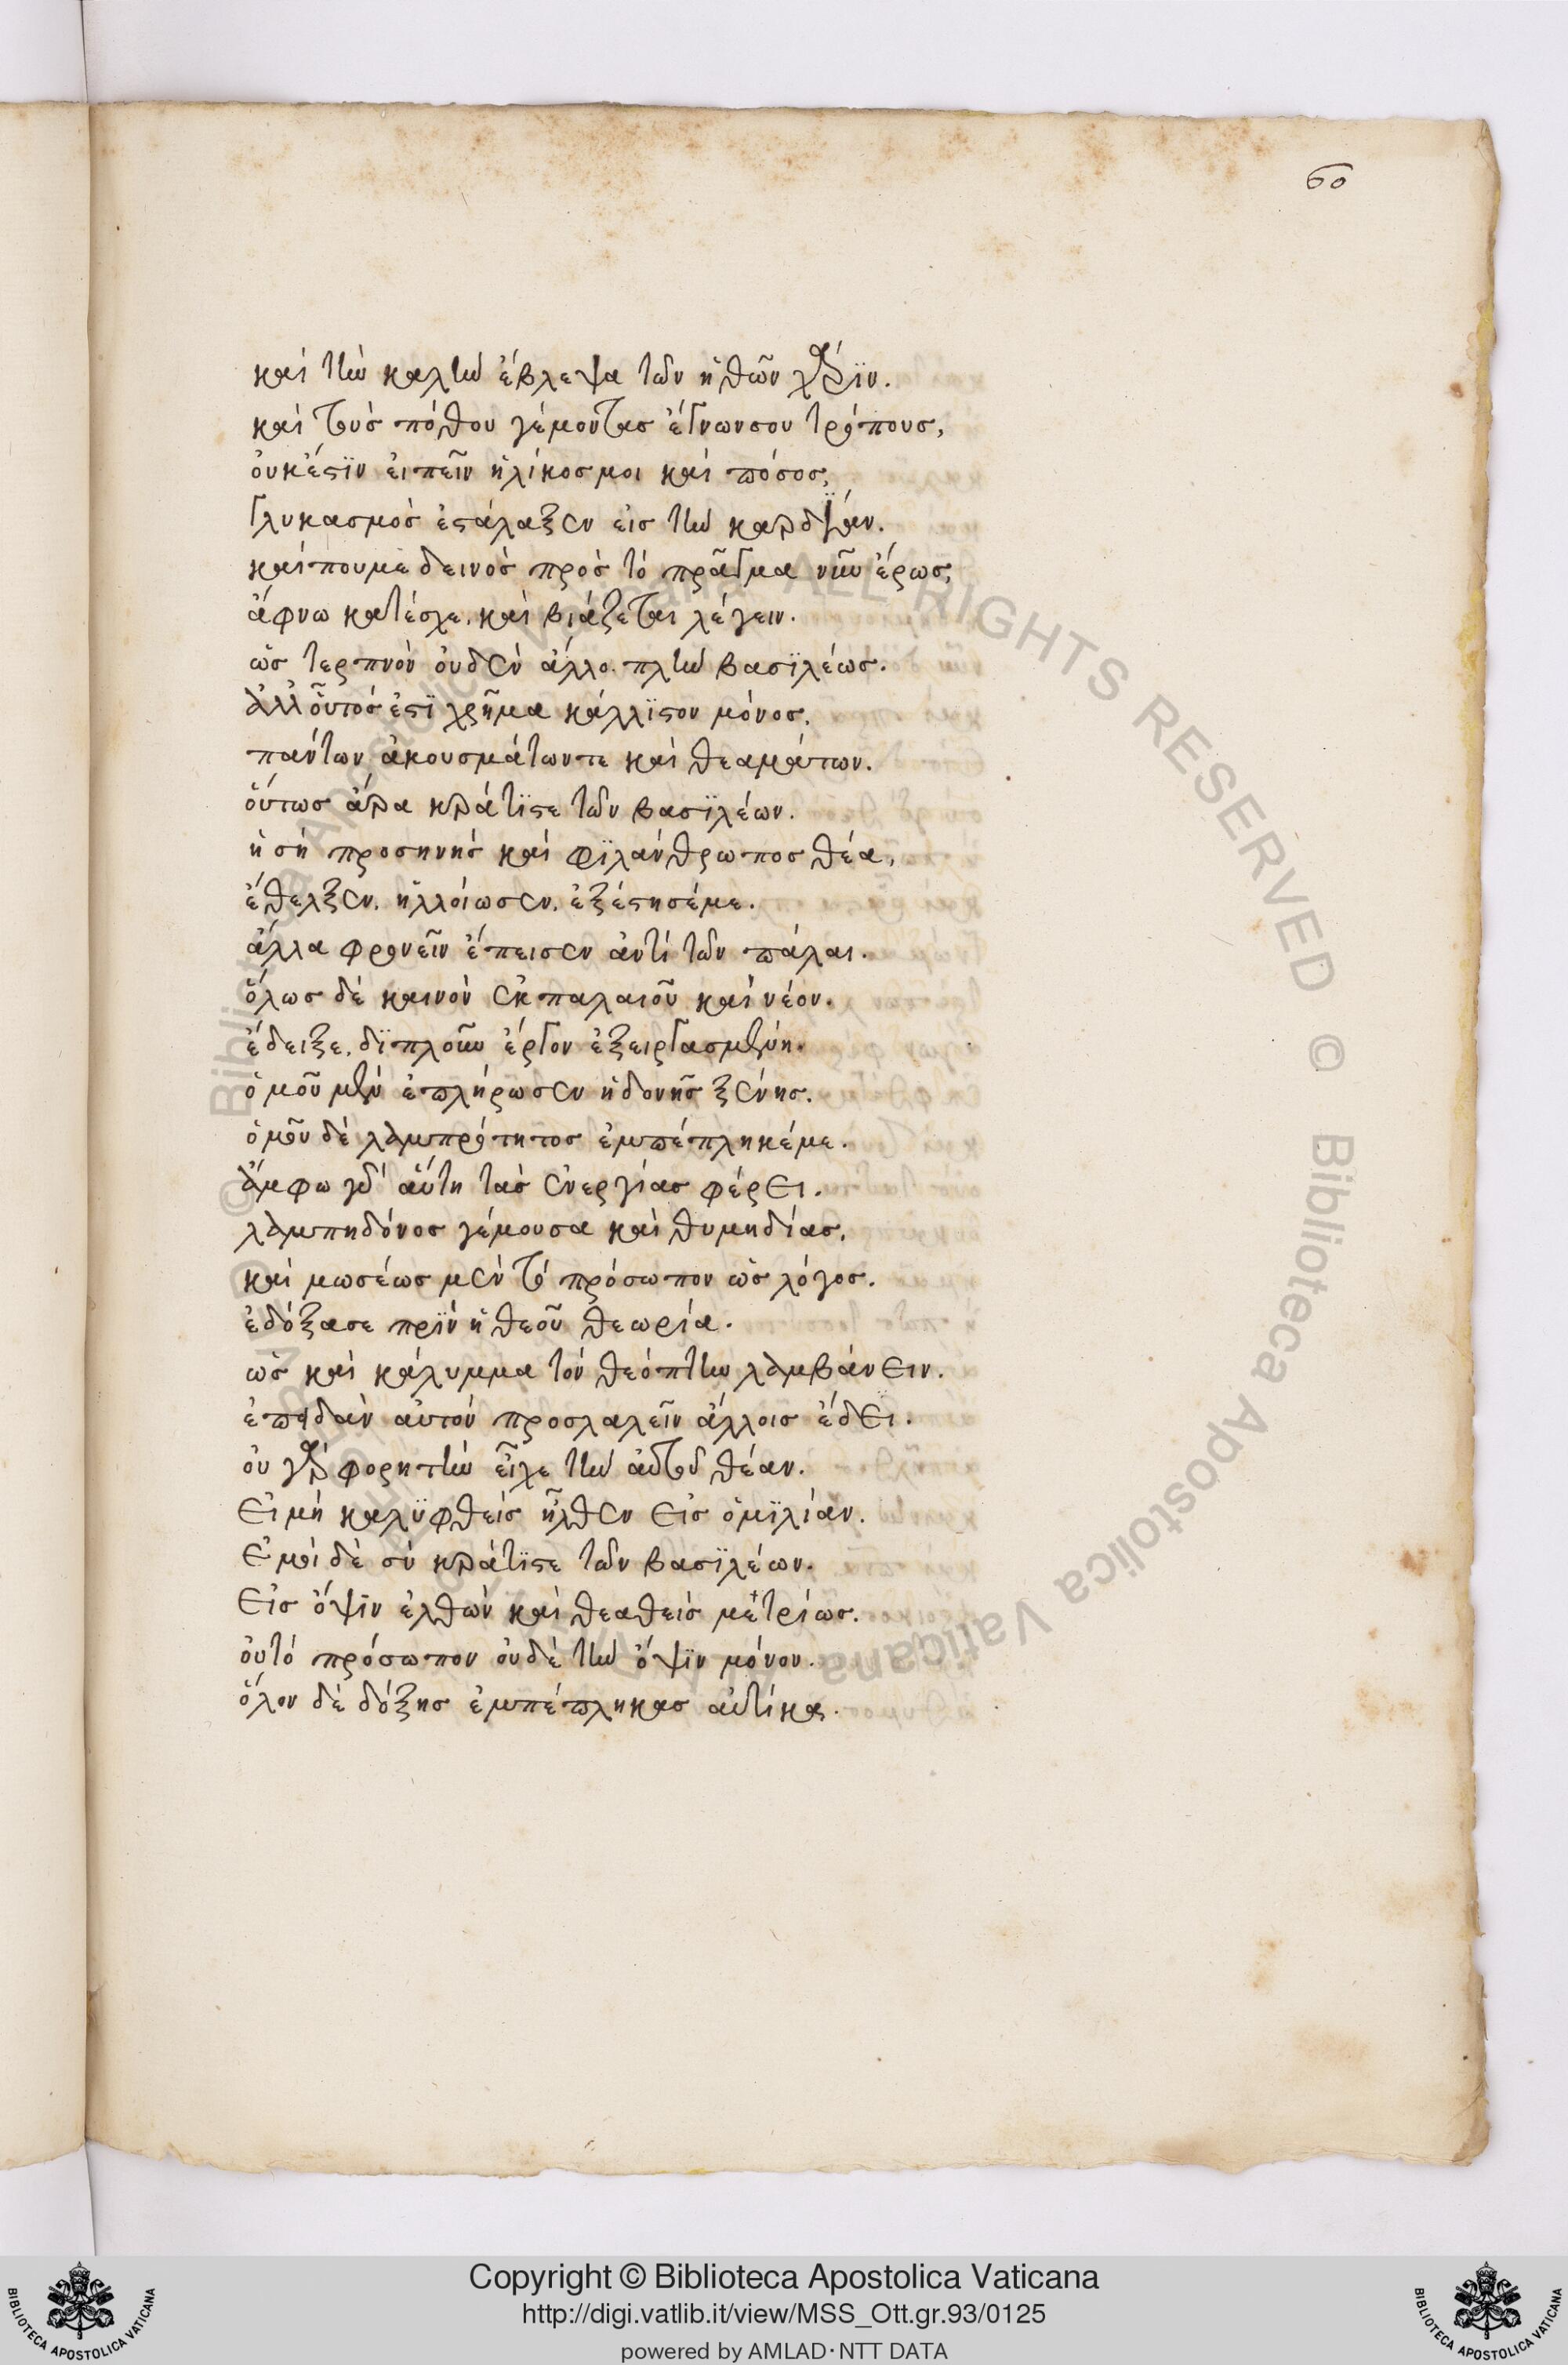 60
καὶ τὴν καλὴν ἔβλεψα τῶν ἠθῶν χάρϊν.
καὶ τοὺς πόθου γέμοντας ἔγνων σου τρόπους,
οὐκ ἔστϊν εἰπεῖν ἡλίκος μοι καὶ πόσος,
γλυκασμὸς ἐστάλαξεν εἰς τὴν καρδίαν.
καίπου με δεινὸς πρὸς τὸ πρᾶγμα νῦν ἔρως,
ἄφνω κατέσχε. καὶ βιάζεται λέγειν.
ὡς τερπνὸν οὐδὲν ἄλλο. πλὴν βασϊλέως.
ἀλλ' οὗτός ἐστϊ χρῆμα κάλλϊστον μόνος,
πάντων ἀκουσμάτων τε καὶ θεαμάτων.
οὕτως ἄρα κράτϊστε τῶν βασϊλέων.
ἡ σὴ προσηνὴς καὶ φϊλάνθρωπος θέα,
ἔθελξεν. ἠλλοίωσεν. ἐξέστησέ με.
ἄλλα φρονεῖν ἔπεισεν ἀντὶ τῶν πάλαι.
ὅλως δὲ καινὸν ἐκ παλαιοῦ καὶ νέον.
ἔδειξε. δϊπλοῦν ἔργον ἐξειργασμένη.
ὁμοῦ μὲν ἐπλήρωσεν ἡδονῆς ξένης.
ὁμοῦ δὲ λαμπρότητος ἐμπέπληκέ με.
ἄμφω γὰρ αὕτη τὰς ἐνεργίας φέρει.
λαμπηδόνος γέμουσα καὶ θυμηδίας,
καὶ μωσέως μὲν τὸ πρόσωπον ὡς λόγος.
ἐδόξασε πρῒν ἡ θεοῦ θεωρία.
ὡς καὶ κάλυμμα τὸν θεόπτην λαμβάνειν.
ἐπειδὰν αὐτὸν προσλαλεῖν ἄλλοις ἔδει.
οὐ γὰρ φορητὴν εἶχε τὴν αὐτοῦ θέαν.
Εἰ μὴ καλϋφθεὶς ἦλθεν εἰς ὁμϊλίαν.
Ἐμοὶ δὲ σὺ κράτϊστε τῶν βασϊλέων.
Εἰς ὄψϊν ἐλθὼν καὶ θεαθεὶς μετρίως.
οὐ τὸ πρόσωπον οὐδὲ τὴν ὄψϊν μόνον.
ὅλον δὲ δόξης ἐμπέπληκας αὐτίκα.
© Biblioteca Apostolica Vaticana ALL RIGHTS RESERVED © Biblioteca Apostolica Vaticana
Copyright © Biblioteca Apostolica Vaticana
http://digi.vatlib.it/view/MSS_Ott.gr.93/0125
powered by AMLAD·NTT DATA
BIBLIOTECA APOSTOLICA VATICANA
BIBLIOTECA APOSTOLICA VATICANA